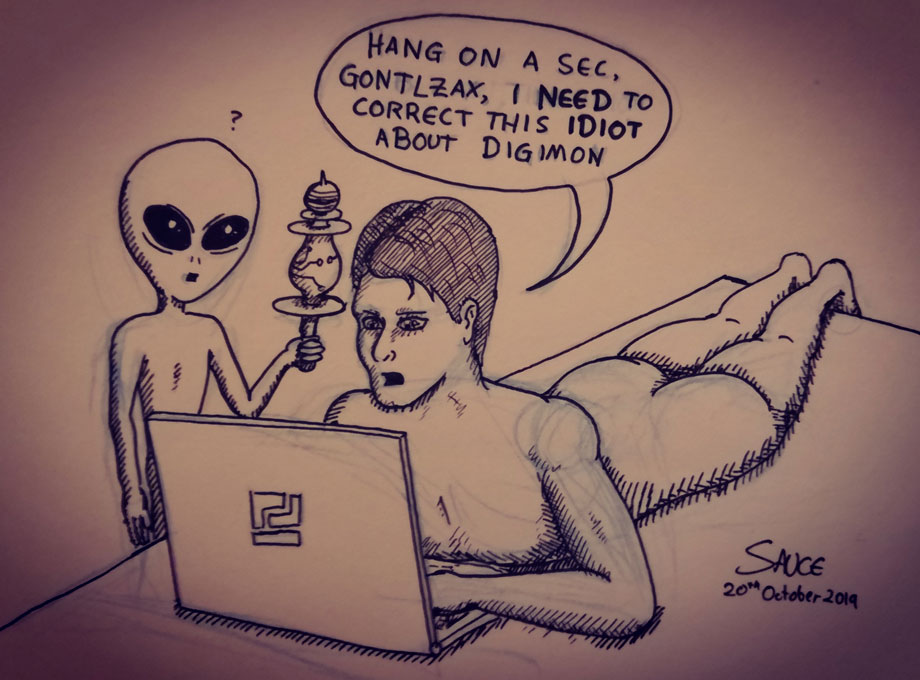 HANG ON A SEC,
GONTLZAX, I NEED TO
CORRECT THIS IDIOT
ABOUT DIGIMON
?
SAUCE
20TH October 2019